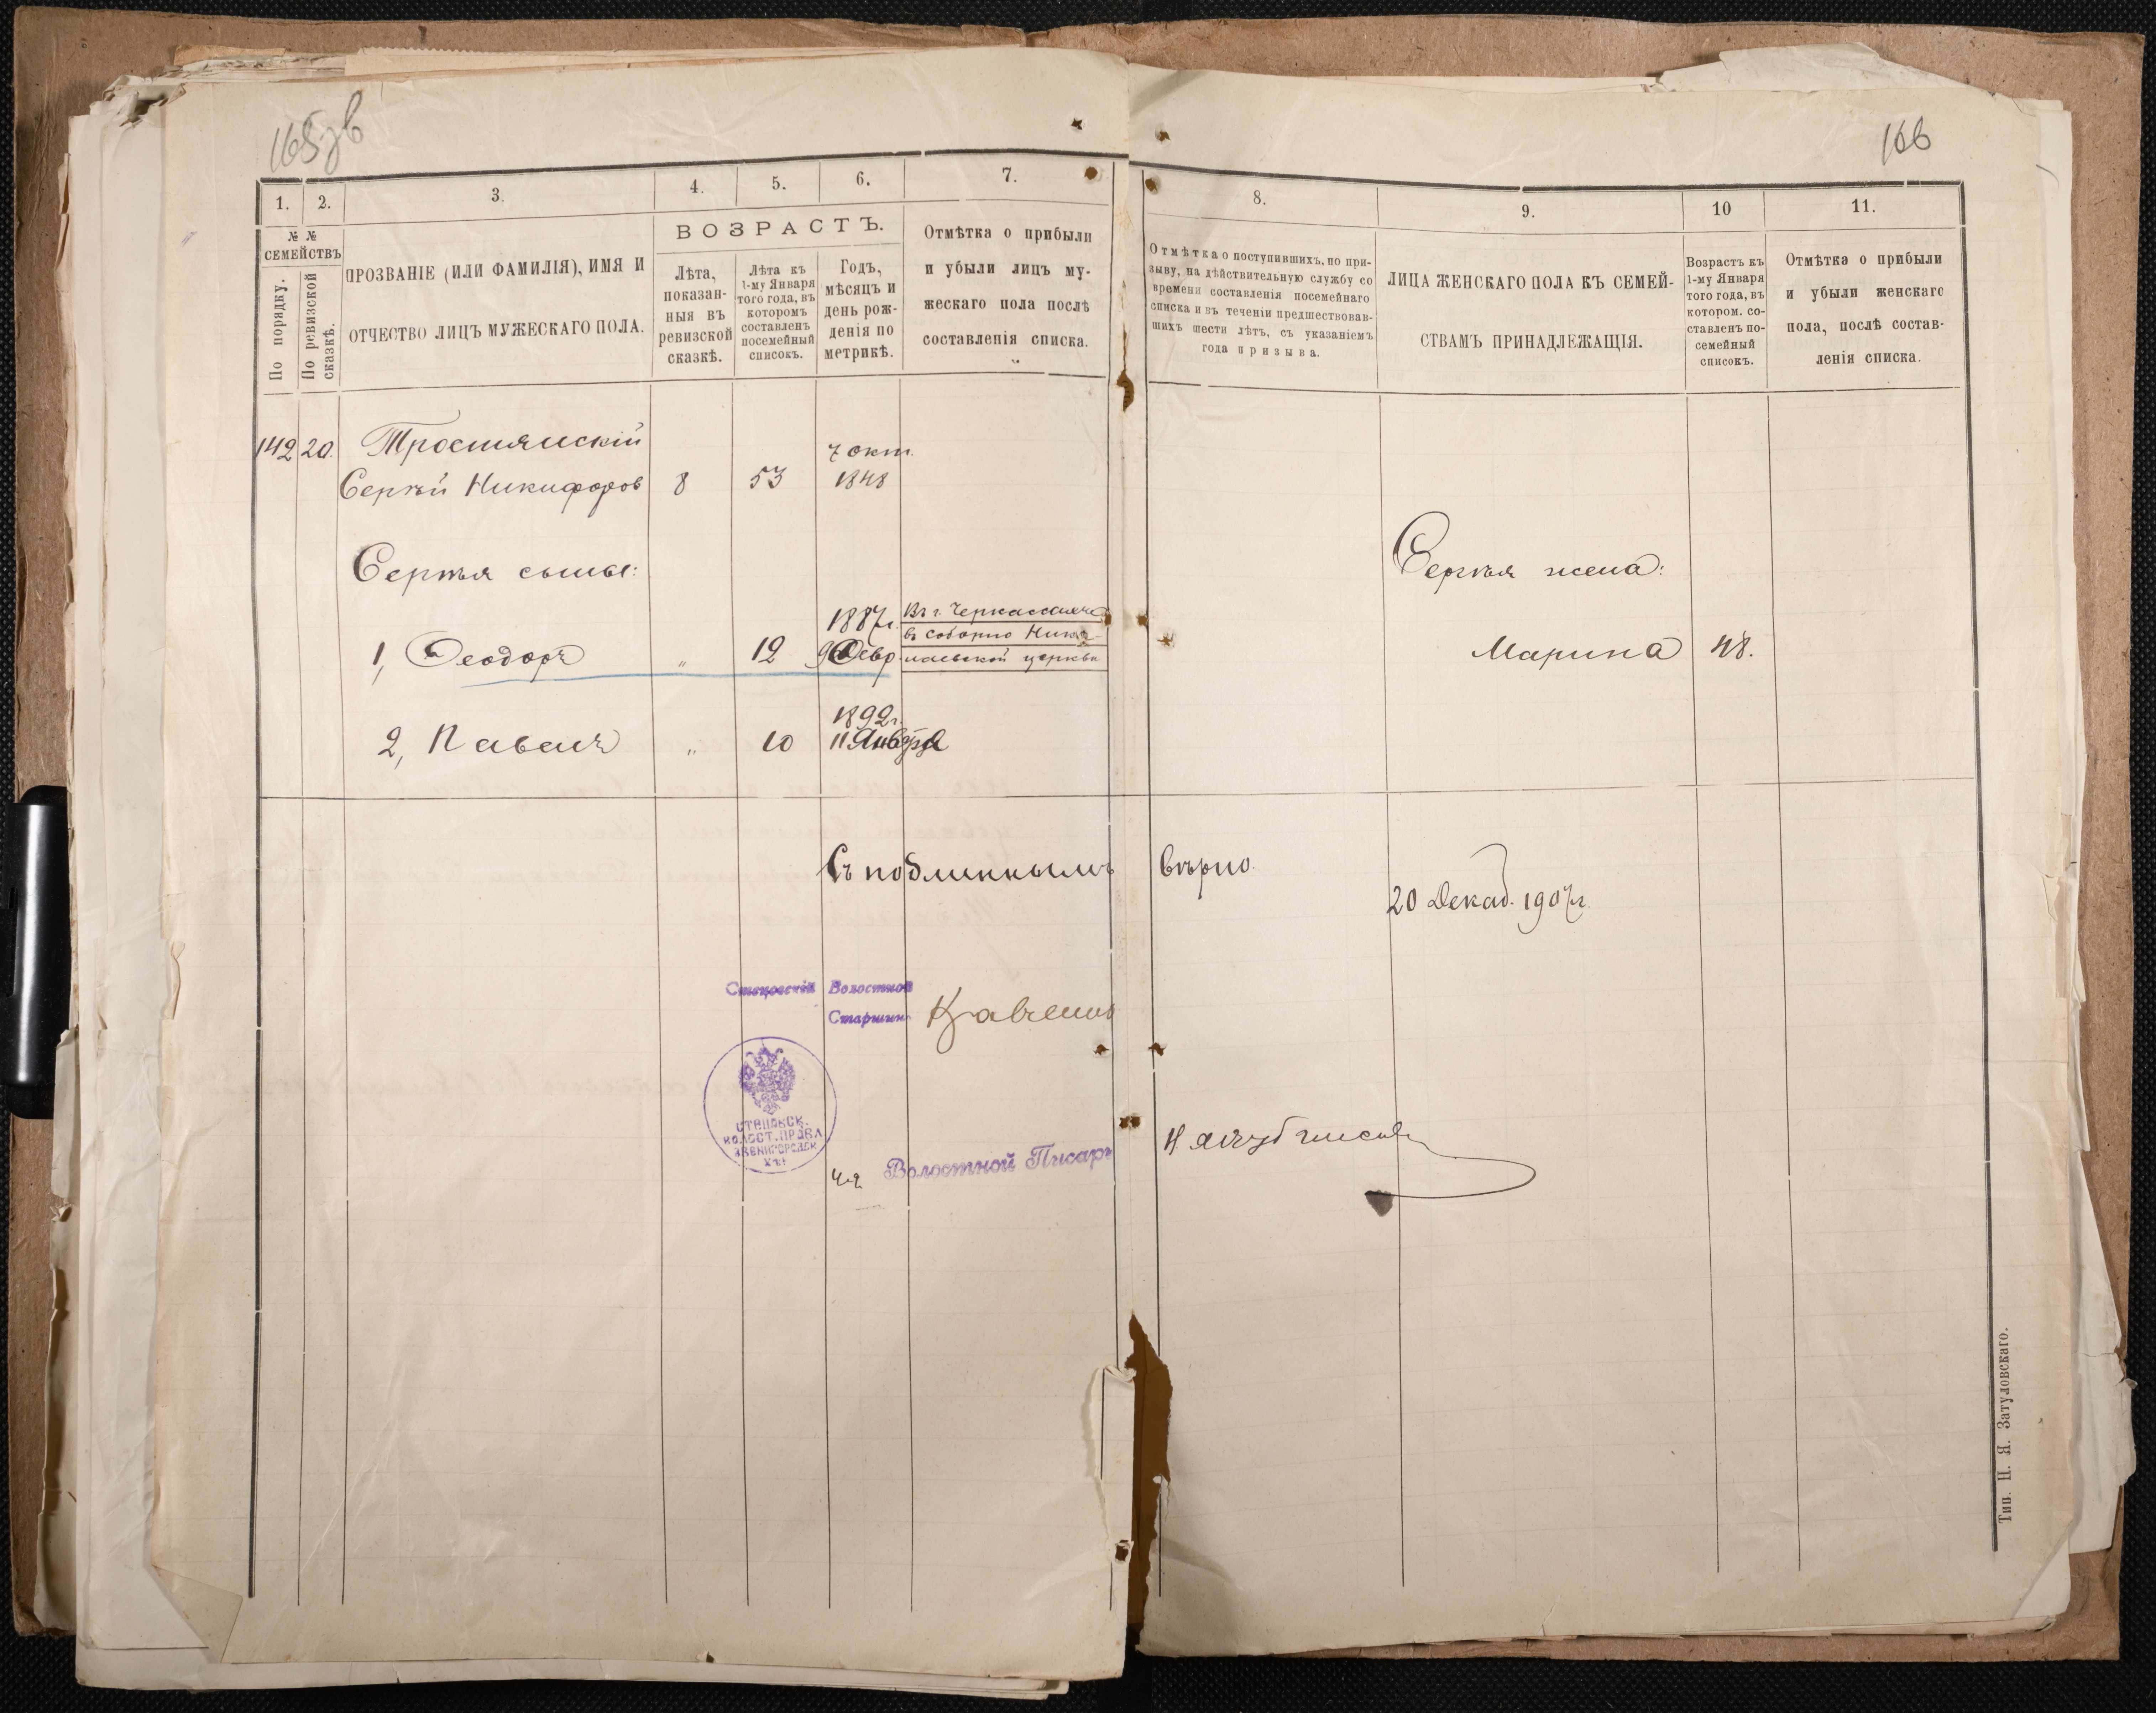 165 зв
166
1. 2. 3. 4. 5. 6. 7.
№ № СЕМЕЙСТВЪ
По порядку.
По ревизской сказкѣ.
ПРОЗВАНІЕ (ИЛИ ФАМИЛІЯ), ИМЯ И
ОТЧЕСТВО ЛИЦЪ МУЖЕСКАГО ПОЛА.
ВОЗРАСТЪ.
Лѣта,
показан-
ныя въ
ревизской
сказкѣ.
Лѣта къ
1-му Января
того года, въ
которомъ
составленъ
посемейный
списокъ.
Годъ,
мѣсяцъ и
день рож-
денія по
метрикѣ.
Отмѣтка о прибыли
и убыли лицъ му-
жескаго пола послѣ
составленія списка.
8. 9. 10 11.
Отмѣтка о поступившихъ, по при-
зыву, на дѣйствительную службу со
времени составленія посемейнаго
списка и въ теченіи предшествовав-
шихъ шести лѣтъ, съ указаніемъ
года призыва.
ЛИЦА ЖЕНСКАГО ПОЛА КЪ СЕМЕЙ-
СТВАМЪ ПРИНАДЛЕЖАЩІЯ.
Возрастъ къ
1-му Января
того года, въ
котором. со-
ставленъ по-
семейный
списокъ.
Отмѣтка о прибыли
и убыли женскаго
пола, послѣ состав-
ленія списка.
142 20. Тростянскій
7 окт.
Сергѣй Никифоров 8 53 1848
Сергѣя сыны:
Сергѣя жена:
1887 г. Въ г. Черкассахъ
въ соборно Нико-
1, Феодоръ " 12 9 Февр. лаевской церкви
Марина 48.
1892 г.
2, Павелъ " 10 11 Января
Съ подлиннымъ вѣрно.
20 Декаб. 1907 г.
Волостной
Старшин
СТЕЦОВСК.
ВОЛОСТ. ПРАВЛ
ЗВЕНИГОРОДСК
Волостной Писарь
Тип. Н. Я. Затуловскаго.